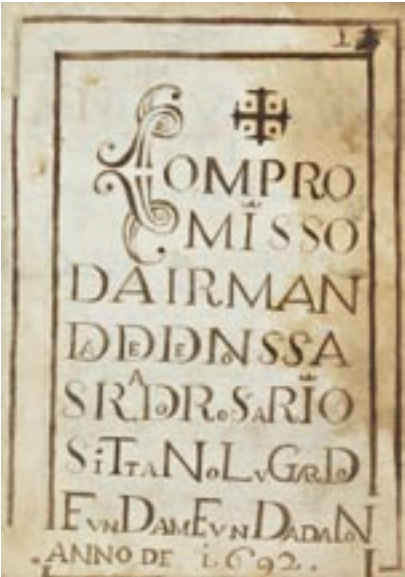 COMPRO
MISSO
DA IRMAN
DADE DE NOSSA
SRA DO ROSARIO
SITTA NO LVGAR D
EVNDAM EVNDADA
ANNO DE 1692.